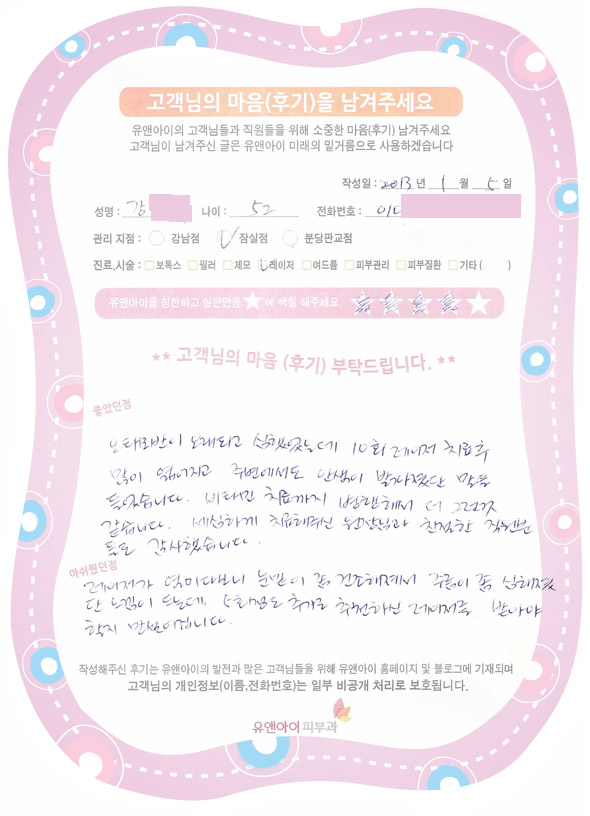 고객님의 마음(후기)을 남겨주세요
유앤아이의 고객님들과 직원들을 위해 소중한 마음(후기) 남겨주세요
고객님이 남겨주신 글은 유앤아이 미래의 밑거름으로 사용하겠습니다
작성일 : 2013 년 1 월 5 일
성명 : 강 나이 : 52 전화번호 : 010
관리 지점 : 강남점 잠실점 분당판교점
진료,시술 : 보톡스 필러 제모 레이저 여드름 피부관리 피부질환 기타 ( )
유앤아이를 칭찬하고 싶은만큼 ★에 색칠 해주세요. ★★★★★
** 고객님의 마음 (후기) 부탁드립니다. **
좋았던점
오타모반이 오래되고 심했었는데 10회 레이저 치료후
많이 엷어지고 주변에서도 인상이 밝아졌단 말을
들었습니다. 비타민 치료까지 병행해서 더 그런것
같습니다. 세심하게 치료해주신 원장님과 친절한 직원분
들도 감사했습니다.
아쉬웠던점
레이저가 열이다보니 눈밑이 좀 건조해져서 주름이 좀 심해졌
단 느낌이 드는데, 5회정도 추가로 추천하신 레이저를 받아야
할지 망설여집니다.
작성해주신 후기는 유앤아이의 발전과 많은 고객님들을 위해 유앤아이 홈페이지 및 블로그에 기재되며
고객님의 개인정보(이름,전화번호)는 일부 비공개 처리로 보호됩니다.
유앤아이피부과